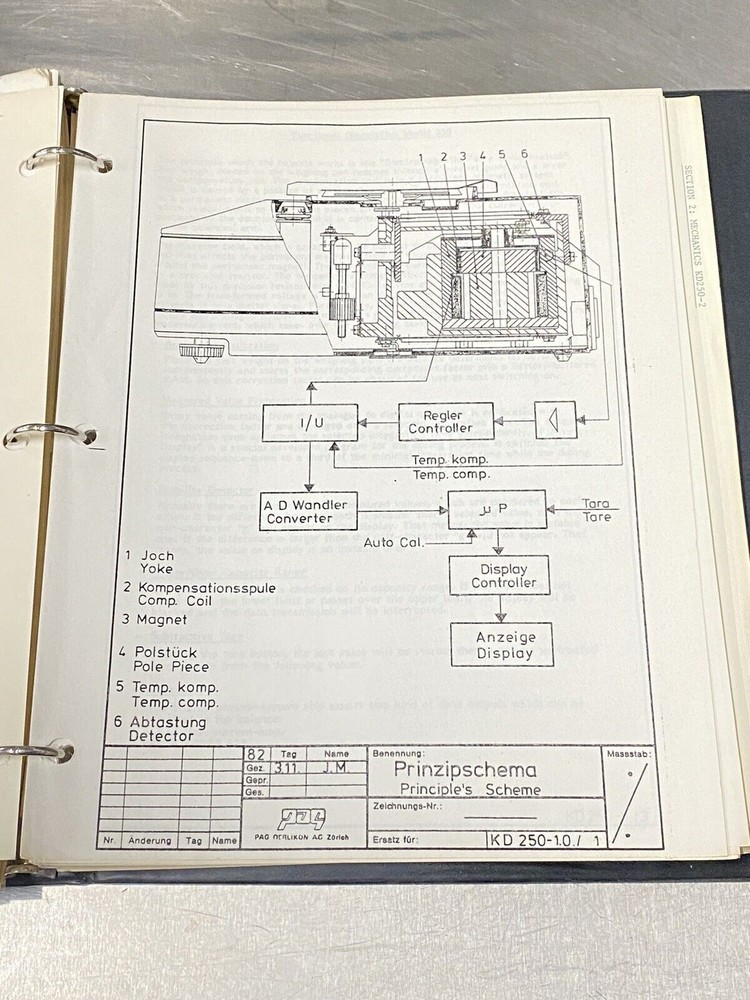 SECTION 2: MECHANICS KD250-2
1 2 3 4 5 6
I/U
Regler
Controller
Temp. komp.
Temp. comp.
A D Wandler
Converter
µP
Tara
Tare
Auto Cal.
Display
Controller
Anzeige
Display
1 Joch
Yoke
2 Kompensationsspule
Comp. Coil
3 Magnet
4 Polstück
Pole Piece
5 Temp. komp.
Temp. comp.
6 Abtastung
Detector
82 Tag Name
Gez. 3.11. J.M.
Gepr.
Ges.
Nr. Änderung Tag Name
PAG OERLIKON AG Zürich
Benennung:
Prinzipschema
Principle's Scheme
Zeichnungs-Nr.:
Ersatz für: KD 250-1.0./ 1
Massstab: